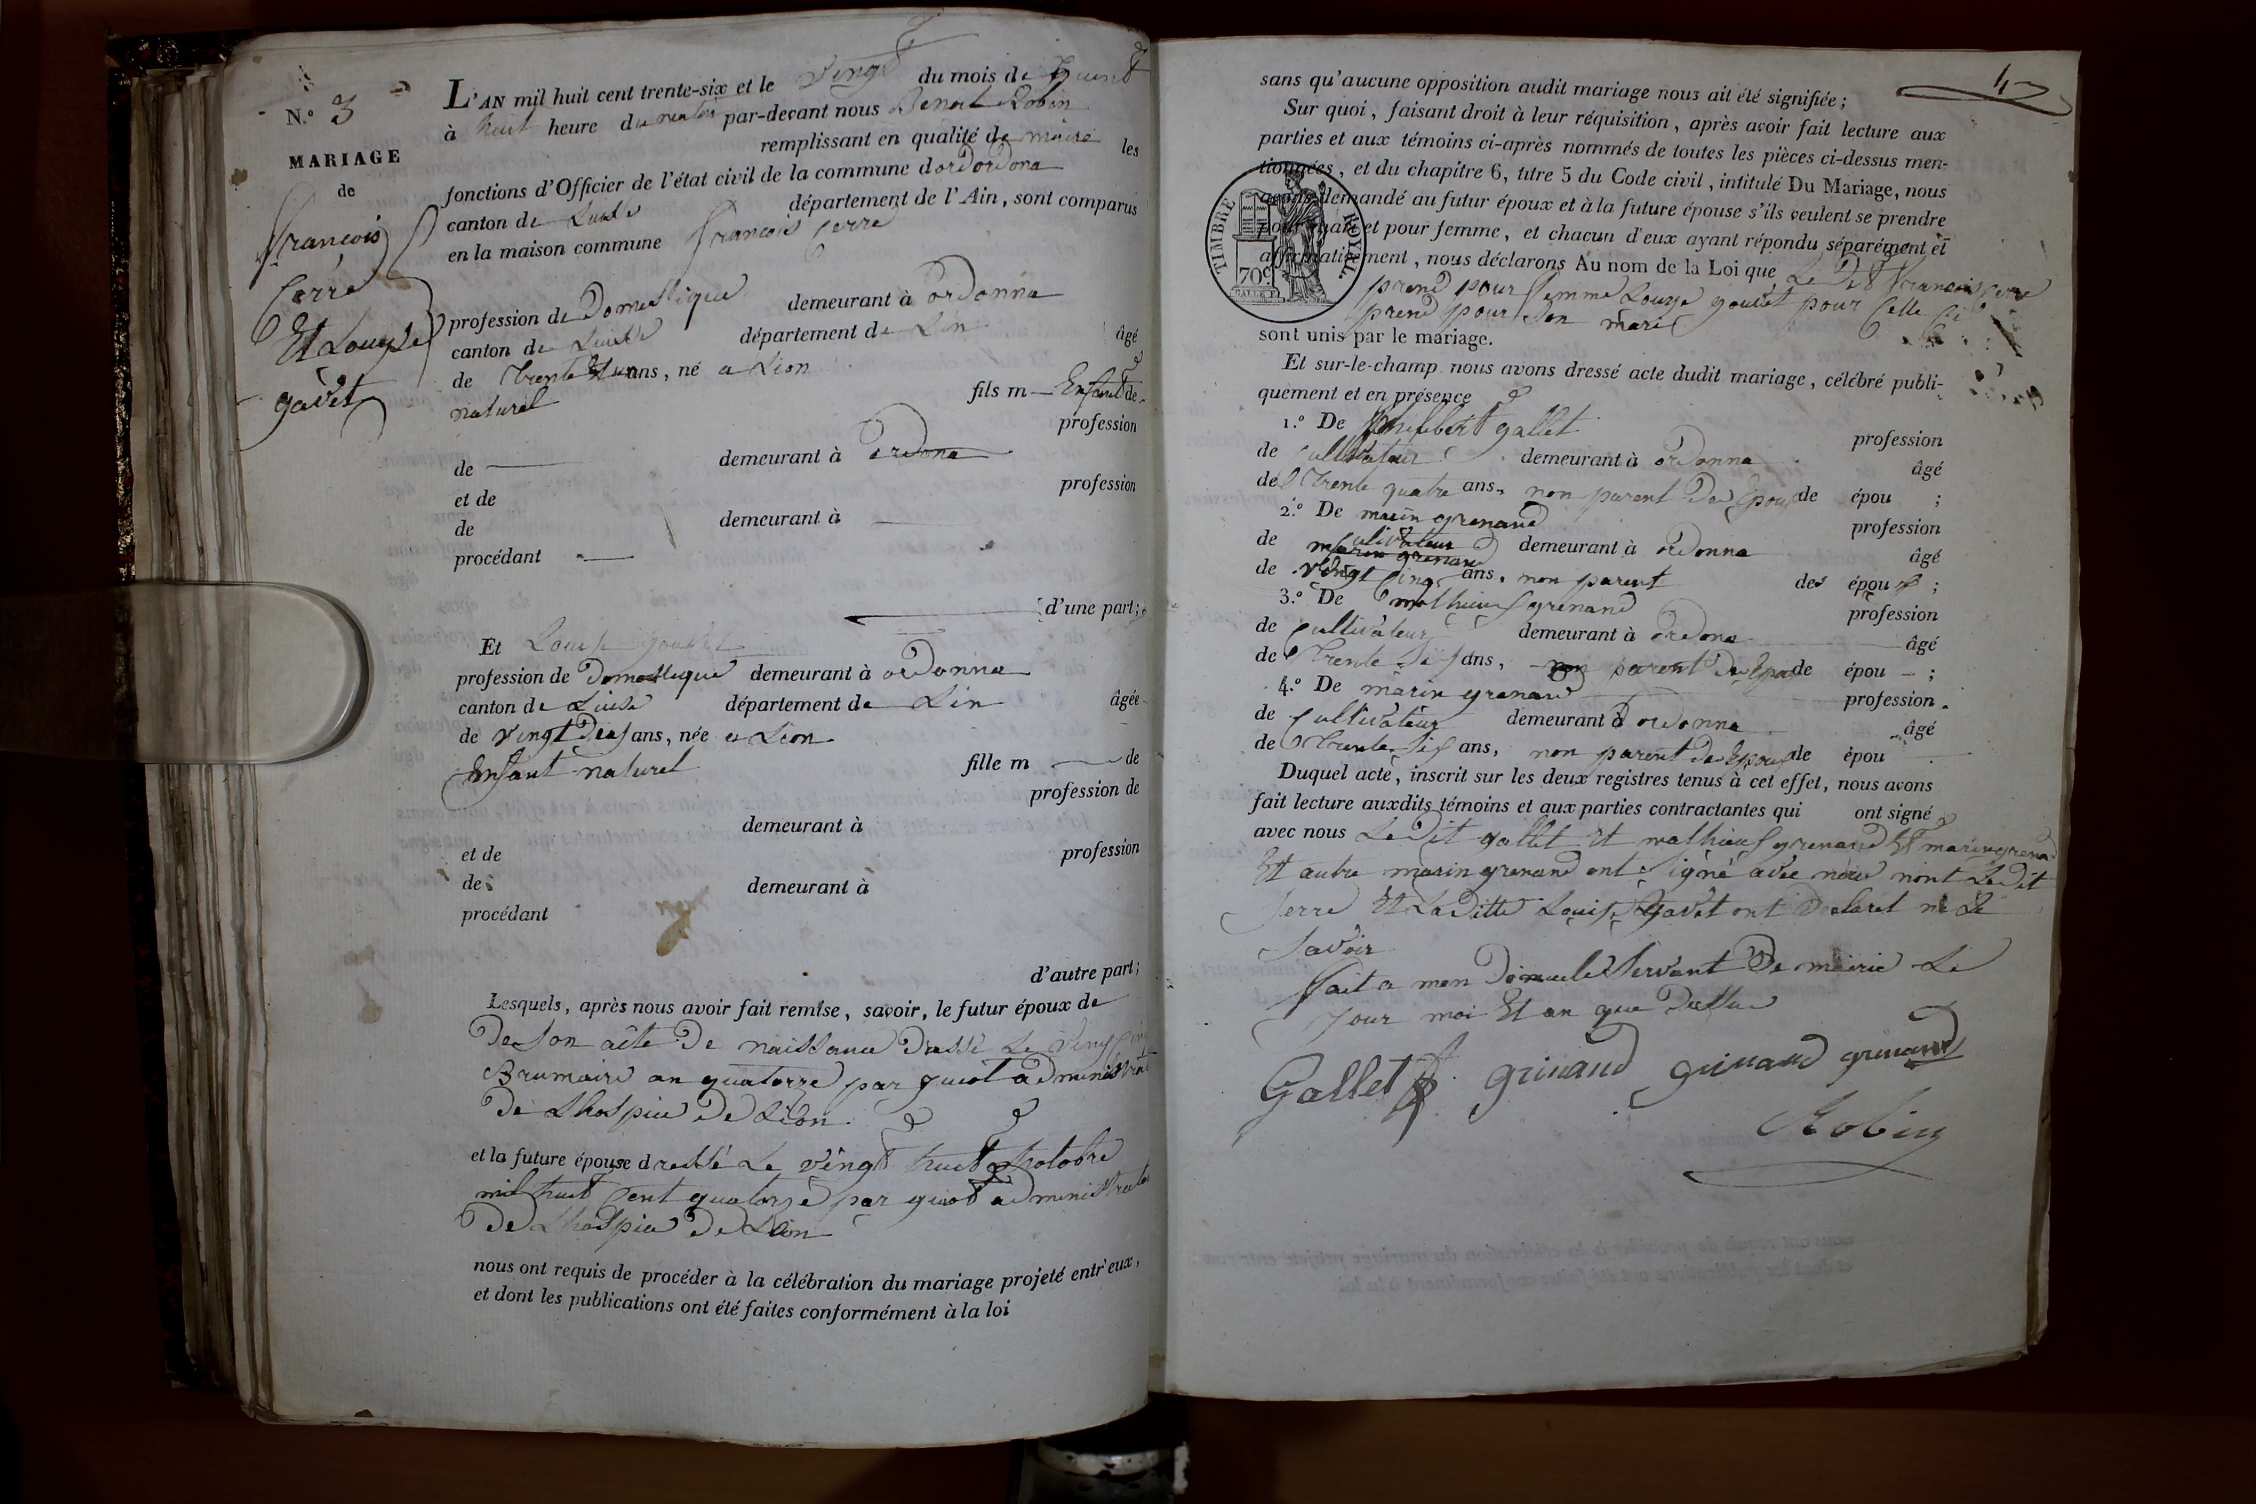 N.º 3
MARIAGE
de
françois
Cerre
Et Louyse
gavet
L'AN mil huit cent trente-six et le vingt du mois de
à huit heure du matin par-devant nous Benoit Robin
remplissant en qualité de maire les
fonctions d'Officier de l'état civil de la commune dordordona
canton de département de l'Ain, sont comparus
en la maison commune francois Cerre
profession de Domestique demeurant à ordonna
canton de département de Lin âgé
de trente Et un ans, né a Lion
naturel fils m — Enfant de
profession
de — demeurant à ordona
et de profession
de demeurant à —
procédant —
d'une part;
Et Louise
profession de Domestique demeurant à ordonna
canton de département de Lin âgée
de vingt deux ans, née a Lion
Enfant naturel fille m — de
profession de
demeurant à
et de profession
de demeurant à
procédant
d'autre part;
Lesquels, après nous avoir fait remise, savoir, le futur époux de
De son acte De naissance Dressé Le
Brumaire an quatorze par
De Lhospice De Lion
et la future épouse dressé Le vingt huit
mil huit Cent quatorze par
De Lhospice De Lion
nous ont requis de procéder à la célébration du mariage projeté entr'eux,
et dont les publications ont été faites conformément à la loi
4
sans qu'aucune opposition audit mariage nous ait été signifiée;
Sur quoi, faisant droit à leur réquisition, après avoir fait lecture aux
parties et aux témoins ci-après nommés de toutes les pièces ci-dessus men-
tionnées, et du chapitre 6, titre 5 du Code civil, intitulé Du Mariage, nous
avons demandé au futur époux et à la future épouse s'ils veulent se prendre
pour mari et pour femme, et chacun d'eux ayant répondu séparément et
affirmativement, nous déclarons Au nom de la Loi que Le Dit francois Cerre
prend pour femme Louyse pour Celle Ci
prend pour son mari
TIMBRE ROYAL
70c.
sont unis par le mariage.
Et sur-le-champ nous avons dressé acte dudit mariage, célébré publi-
quement et en présence
1.º De philibert gallet profession
de Cultivateur demeurant à ordonna âgé
de trente quatre ans, non parent Des Epoux de épou ;
2.º De marin grenand profession
de Cultivateur demeurant à ordonna âgé
marin grenand
de vingt Cinq ans, non parent des époux ;
3.º De mathieu grenand profession
de Cultivateur demeurant à ordona âgé
de trente Six ans, non parent Des Epou de épou — ;
4.º De marin grenand profession
de Cultivateur demeurant à ordonna âgé
de trente Six ans, non parent Des Epoux de épou
Duquel acte, inscrit sur les deux registres tenus à cet effet, nous avons
fait lecture auxdits témoins et aux parties contractantes qui ont signé
avec nous Le Dit gallet Et mathieu grenand Et marin grenand
Et autre marin grenand ont Signé avec nous nont Le Dit
Serre Et La Ditte Louise gavet ont Declaret ne Le
Savoir
fait a mon Domicile Servant De mairie Le
Jour moi Et an que Dessu
Gallet grenand grenand grenand
Robin